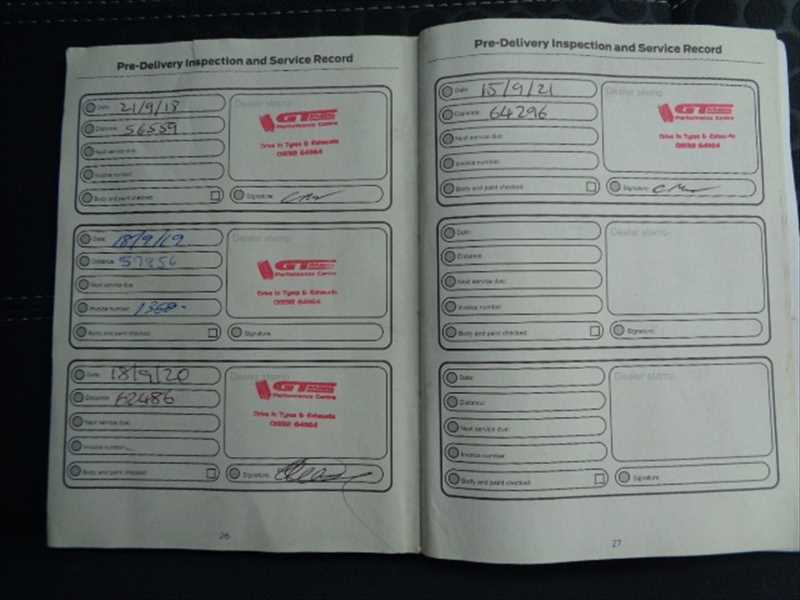 Pre-Delivery Inspection and Service Record
Date: 21/9/18
Distance: 56559
Next service due:
Invoice number:
Body and paint checked
Dealer stamp
GT
Performance Centre
Drive In Tyres & Exhausts
Signature:
Date: 18/9/19
Distance: 57956
Next service due:
Invoice number: 1368-
Body and paint checked
Dealer stamp
GT
Performance Centre
Drive In Tyres & Exhausts
Signature:
Date: 18/9/20
Distance: 62486
Next service due:
Invoice number:
Body and paint checked
Dealer stamp
GT
Performance Centre
Drive In Tyres & Exhausts
Signature:
26
Pre-Delivery Inspection and Service Record
Date: 15/9/21
Distance: 64296
Next service due:
Invoice number:
Body and paint checked
Dealer stamp
GT
Performance Centre
Drive In Tyres & Exhausts
Signature:
Date:
Distance:
Next service due:
Invoice number:
Body and paint checked
Dealer stamp
Signature:
Date:
Distance:
Next service due:
Invoice number:
Body and paint checked
Dealer stamp
Signature:
27